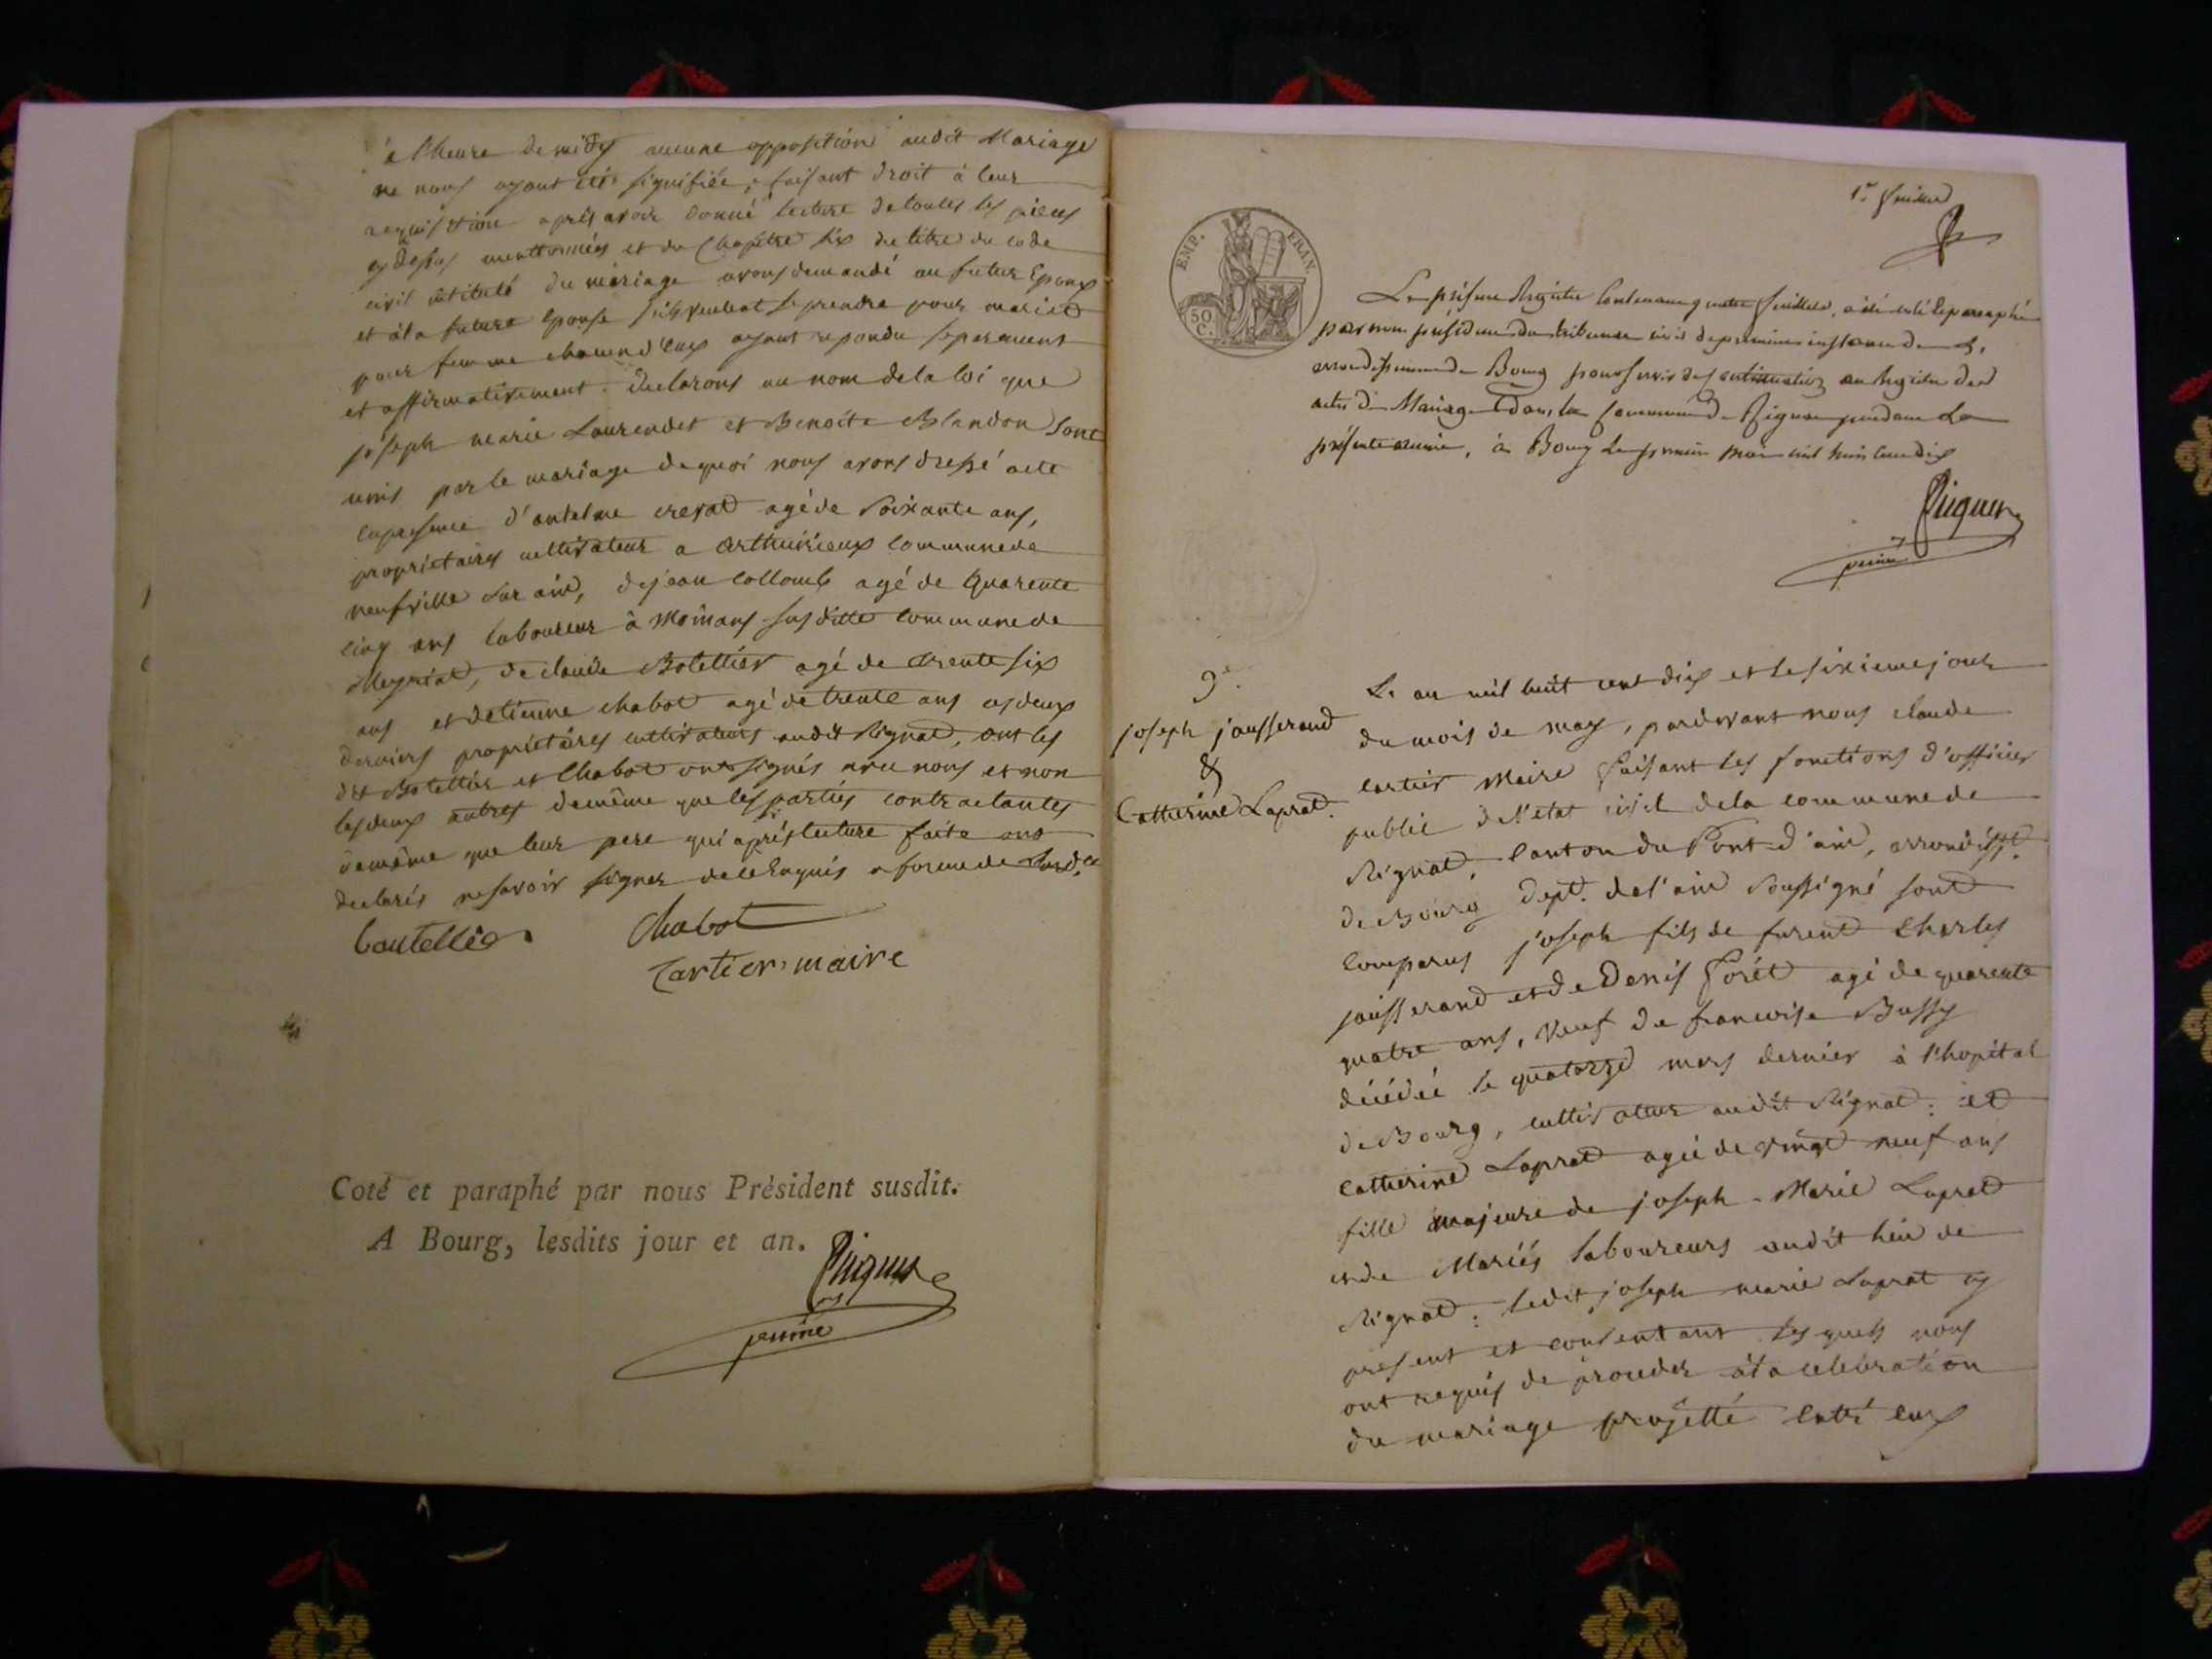 à l'heure de midy aucune opposition audit Mariage
ne nous ayant été signifiée, faisant droit à leur
requisition après avoir donné lecture de toutes les pieces
cy dessus mentionnées et du Chapitre six du titre du code
civil intitulé du mariage avons demandé au futur Epoux
et à la future Epouse s'ils veulent se prendre pour mari et
pour femme chacun d'eux ayant repondu separement
et affirmativement. declarons au nom de la loi que
joseph marie Laurendet et Benoite Blandon sont
unis par le mariage de quoi nous avons dressé acte
en presence d'antelme crevat agé de soixante ans,
proprietaires cultivateur a arthuirieux commune de
neufville sur ain, de jean collomb agé de quarente
cinq ans laboureur à Moinans susditte commune de
Meyriat, de claude Botellier agé de trente six
ans et detienne chabot agé de trente ans ces deux
derniers proprietaires cultivateurs audit Rignat, ont les
dit Botellier et Chabot ont signés avec nous et non
les deux autres de même que les parties contractantes
de même que leur pere qui après lecture faite ont
declarés ne savoir signer de ce Enquis
Coutellier Chabot
Cartier, maire
Coté et paraphé par nous Président susdit.
A Bourg, lesdits jour et an.
1er feuillet
EMP. FRAN.
50 C.
Le présent Registre contenant quatre feuillets, a été coté & paraphé
par nous président du tribunal civil de premiere instance de l'
arrondissement de Bourg pour servir de continuation au Registre des
actes de Mariage dans la Commune de Rignat pendant la
présente année, à Bourg le premier mai mil huit cent dix
9e.
joseph jousserand
&
Catherine Laprat.
Le an mil huit cent dix et le sixieme jour
du mois de may, pardevant nous claude
cartier Maire faisant les fonctions d'officier
public de l'etat civil de la commune de
Rignat, canton du Pont d'ain, arrondisst.
de Bourg Dept. de l'ain soussigné sont
comparus joseph fils de furent Charles
jousserand et de Denis Forêt agé de quarente
quatre ans, veuf de francoise Bussy
décédée le quatorze mars dernier à l'hopital
de Bourg, cultivateur audit Rignat : et
catherine Laprat agée de vingt neuf ans
fille majeure de joseph-Marie Laprat
et de Mariés laboureurs audit lieu de
Rignat : ledit joseph marie Laprat cy
present et consentant lesquels nous
ont requis de proceder à la celebration
du mariage projetté entre eux